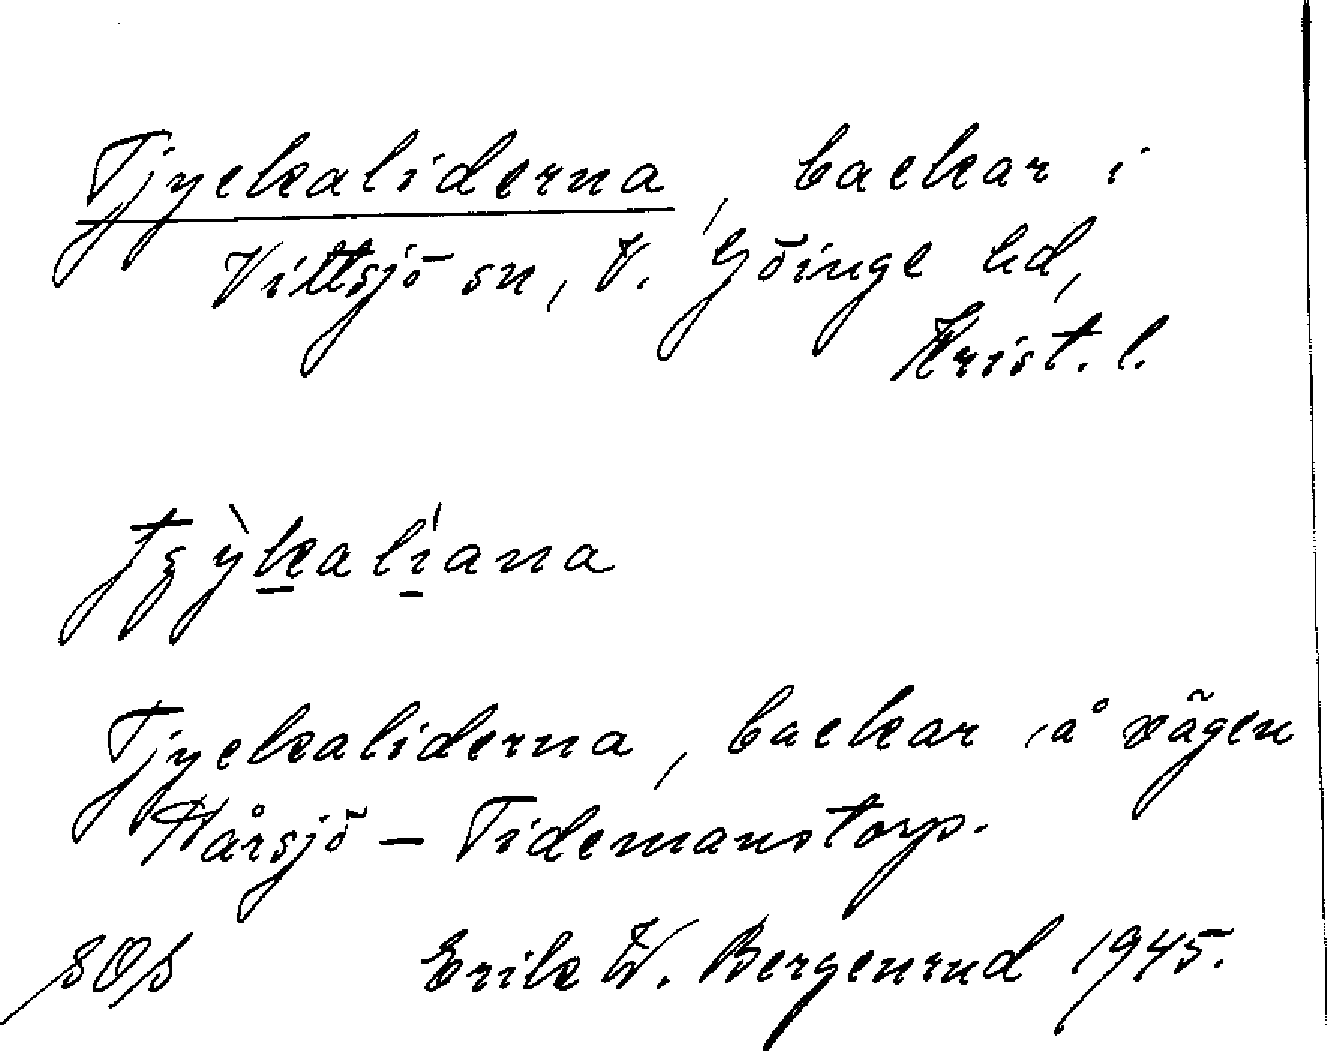 Tjyckaliderna, backar i
Vittsjö sn, V. Göinge hd,
Krist. l.
Tjyckaliderna, backar å vägen
Hårsjö – Tidemanstorp.
Erik W. Bergenrud 1945.